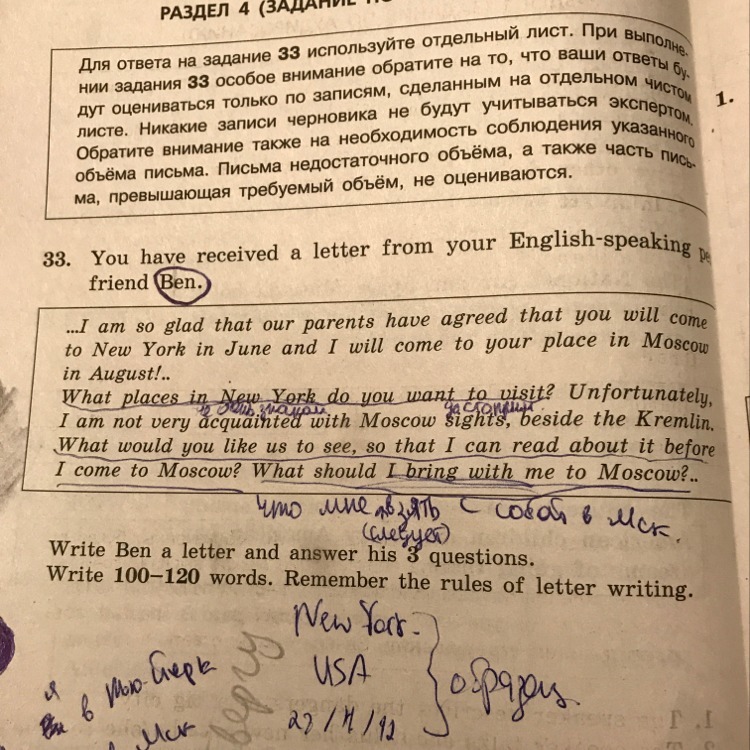 РАЗДЕЛ 4 (ЗАДАНИЕ ПО
Для ответа на задание 33 используйте отдельный лист. При выполне-
нии задания 33 особое внимание обратите на то, что ваши ответы бу-
дут оцениваться только по записям, сделанным на отдельном чистом
листе. Никакие записи черновика не будут учитываться экспертом.
Обратите внимание также на необходимость соблюдения указанного
объёма письма. Письма недостаточного объёма, а также часть пись-
ма, превышающая требуемый объём, не оцениваются.
1.
33. You have received a letter from your English-speaking pe
friend Ben.
...I am so glad that our parents have agreed that you will come
to New York in June and I will come to your place in Moscow
in August!..
What places in New York do you want to visit? Unfortunately,
I am not very acquainted with Moscow sights, beside the Kremlin.
What would you like us to see, so that I can read about it before
I come to Moscow? What should I bring with me to Moscow?..
что мне взять с собой в Мск.
(следует)
Write Ben a letter and answer his 3 questions.
Write 100–120 words. Remember the rules of letter writing.
New York.
USA
образец
я
в Нью-Йорк
Мск